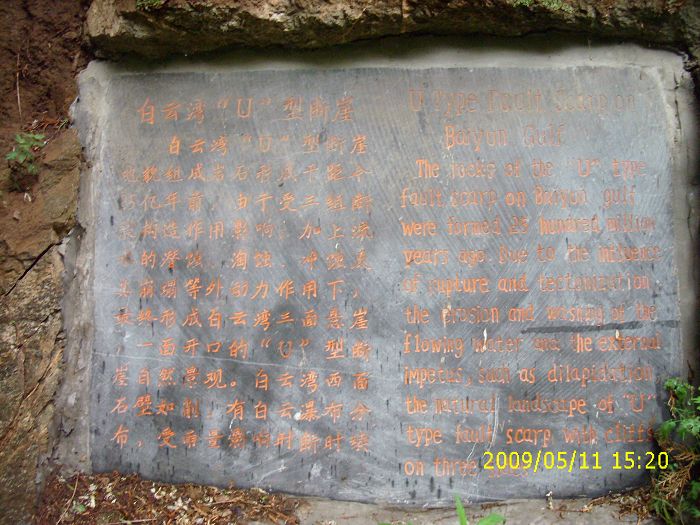 白云湾“U”型断崖
白云湾“U”型断崖
地貌组成岩石形成于距今
25亿年前，由于受三组断
裂构造作用影响，加上流
水的潜蚀、淘蚀、冲蚀及
其崩塌等外动力作用下，
最终形成白云湾三面悬崖
，一面开口的“U”型断
崖自然景观。白云湾西面
石壁如削，有白云瀑布分
布，受雨量影响时断时续
U Type Fault Scarp on
Baiyun Gulf
The rocks of the "U" type
fault scarp on Baiyun gulf
were formed 25 hundred million
years ago. Due to the influence
of rupture and tectonization,
the erosion and wasing of the
flowing water and the external
impetus, such as dilapidation
the natural landscape of "U"
type fault scarp with cliffs
on three
2009/05/11 15:20